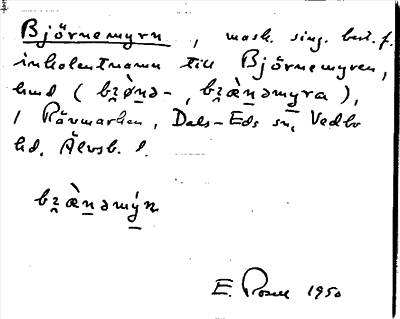 Björnemyrn, mask. sing. best. f.
inkolentnamn till Björnemyren,
hmd (bʒø̀nə-, bʒæ̀nəmyra),
i Rävmarken, Dals-Eds sn, Vedbo
hd. Älvsb. l.
bʒæ̀nəmýn
E. Rosell 1950